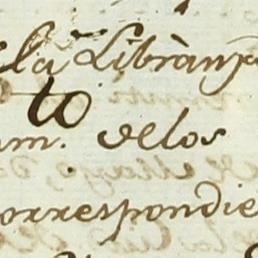 la Libranz
to
m. delos
orrespondie